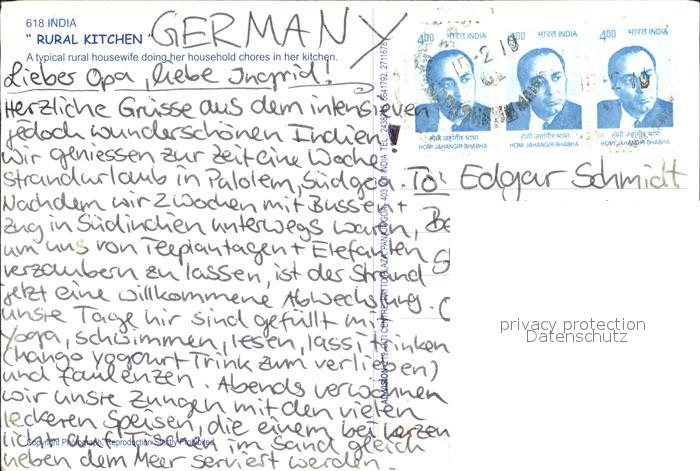 618 INDIA
GERMANY
" RURAL KITCHEN "
A typical rural housewife doing her household chores in her kitchen.
Lieber Opa, liebe Ingrid!
Herzliche Grüsse aus dem intensieven
jedoch wunderschönen Indien!
Wir geniessen zur zeit eine Woche
Strandurlaub in Palolem, Südgoa.
Nachdem wir 2 Wochen mit Bussen +
Zug in Südindien unterwegs waren,
um uns von Teeplantagen + Elefanten
verzaubern zu lassen, ist der Strand
jetzt eine willkommene Abwechslung.
unsre Tage hir sind gefüllt mit
Yoga, schwimmen, lesen, lassi trinken
(Mango yogourt Trink zum verlieben)
und faulenzen. Abends verwöhnen
wir unsre Zungen mit den vielen
leckeren Speisen, die einem bei kerzen
licht auf Tischen im Sand gleich
neben dem Meer serviert werden.
Copyright Photograph, Reproduction Strictly Prohibited
400 भारत INDIA
होमी जहांगीर भाभा
HOMI JAHANGIR BHABHA
400 भारत INDIA
होमी जहांगीर भाभा
HOMI JAHANGIR BHABHA
400 भारत INDIA
होमी जहांगीर भाभा
HOMI JAHANGIR BHABHA
To: Edgar Schmidt
privacy protection
Datenschutz